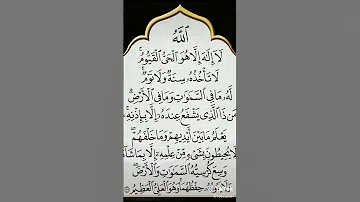 اَللّٰهُ
لَآ اِلٰهَ اِلَّا هُوَ الْحَيُّ الْقَيُّوْمُ
لَا تَأْخُذُهٗ سِنَةٌ وَّلَا نَوْمٌ
لَهٗ مَا فِي السَّمٰوٰتِ وَمَا فِي الْاَرْضِ
مَنْ ذَا الَّذِيْ يَشْفَعُ عِنْدَهٗٓ اِلَّا بِاِذْنِهٖ
يَعْلَمُ مَا بَيْنَ اَيْدِيْهِمْ وَمَا خَلْفَهُمْ
وَلَا يُحِيْطُوْنَ بِشَيْءٍ مِّنْ عِلْمِهٖٓ اِلَّا بِمَا شَآءَ
وَسِعَ كُرْسِيُّهُ السَّمٰوٰتِ وَالْاَرْضَ
حِفْظُهُمَا وَهُوَ الْعَلِيُّ الْعَظِيْمُ